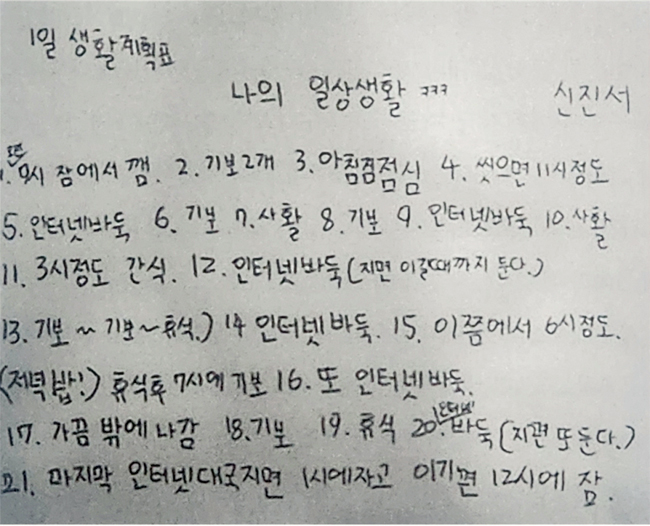 1일 생활계획표
나의 일상생활 ㅋㅋㅋ 신진서
1. 오전 9시 잠에서 깸. 2. 기보2개 3. 아침겸점심 4. 씻으면 11시정도
5. 인터넷바둑 6. 기보 7. 사활 8. 기보 9. 인터넷바둑 10. 사활
11. 3시정도 간식. 12. 인터넷바둑(지면 이길때까지 둔다.)
13. 기보~기보~휴식.) 14 인터넷바둑. 15. 이쯤에서 6시정도.
(저녁밥!) 휴식후 7시에 기보 16. 또 인터넷바둑.
17. 가끔 밖에 나감 18. 기보 19. 휴식 20. 인터넷바둑(지면 또 둔다.)
21. 마지막 인터넷대국지면 1시에자고 이기면 12시에 잠.